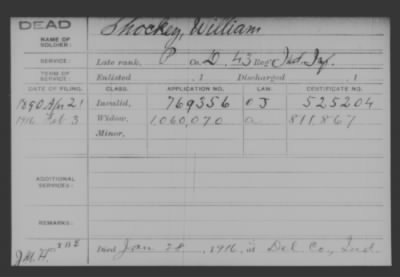 DEAD
Shockey, William
NAME OF
SOLDIER:
SERVICE:
Late rank, P Co. D, 43 Reg't Ind. Inf.
TERM OF
SERVICE:
Enlisted , 1 Discharged , 1
DATE OF FILING. CLASS. APPLICATION NO. LAW. CERTIFICATE NO.
1890 Apr 21 Invalid, 769356 J 525204
1916 Feb 3 Widow, 1,060,070 a 811,867
Minor,
ADDITIONAL
SERVICES:
REMARKS:
J.M.H.
Died Jan 28, 1916, at Del. Co., Ind